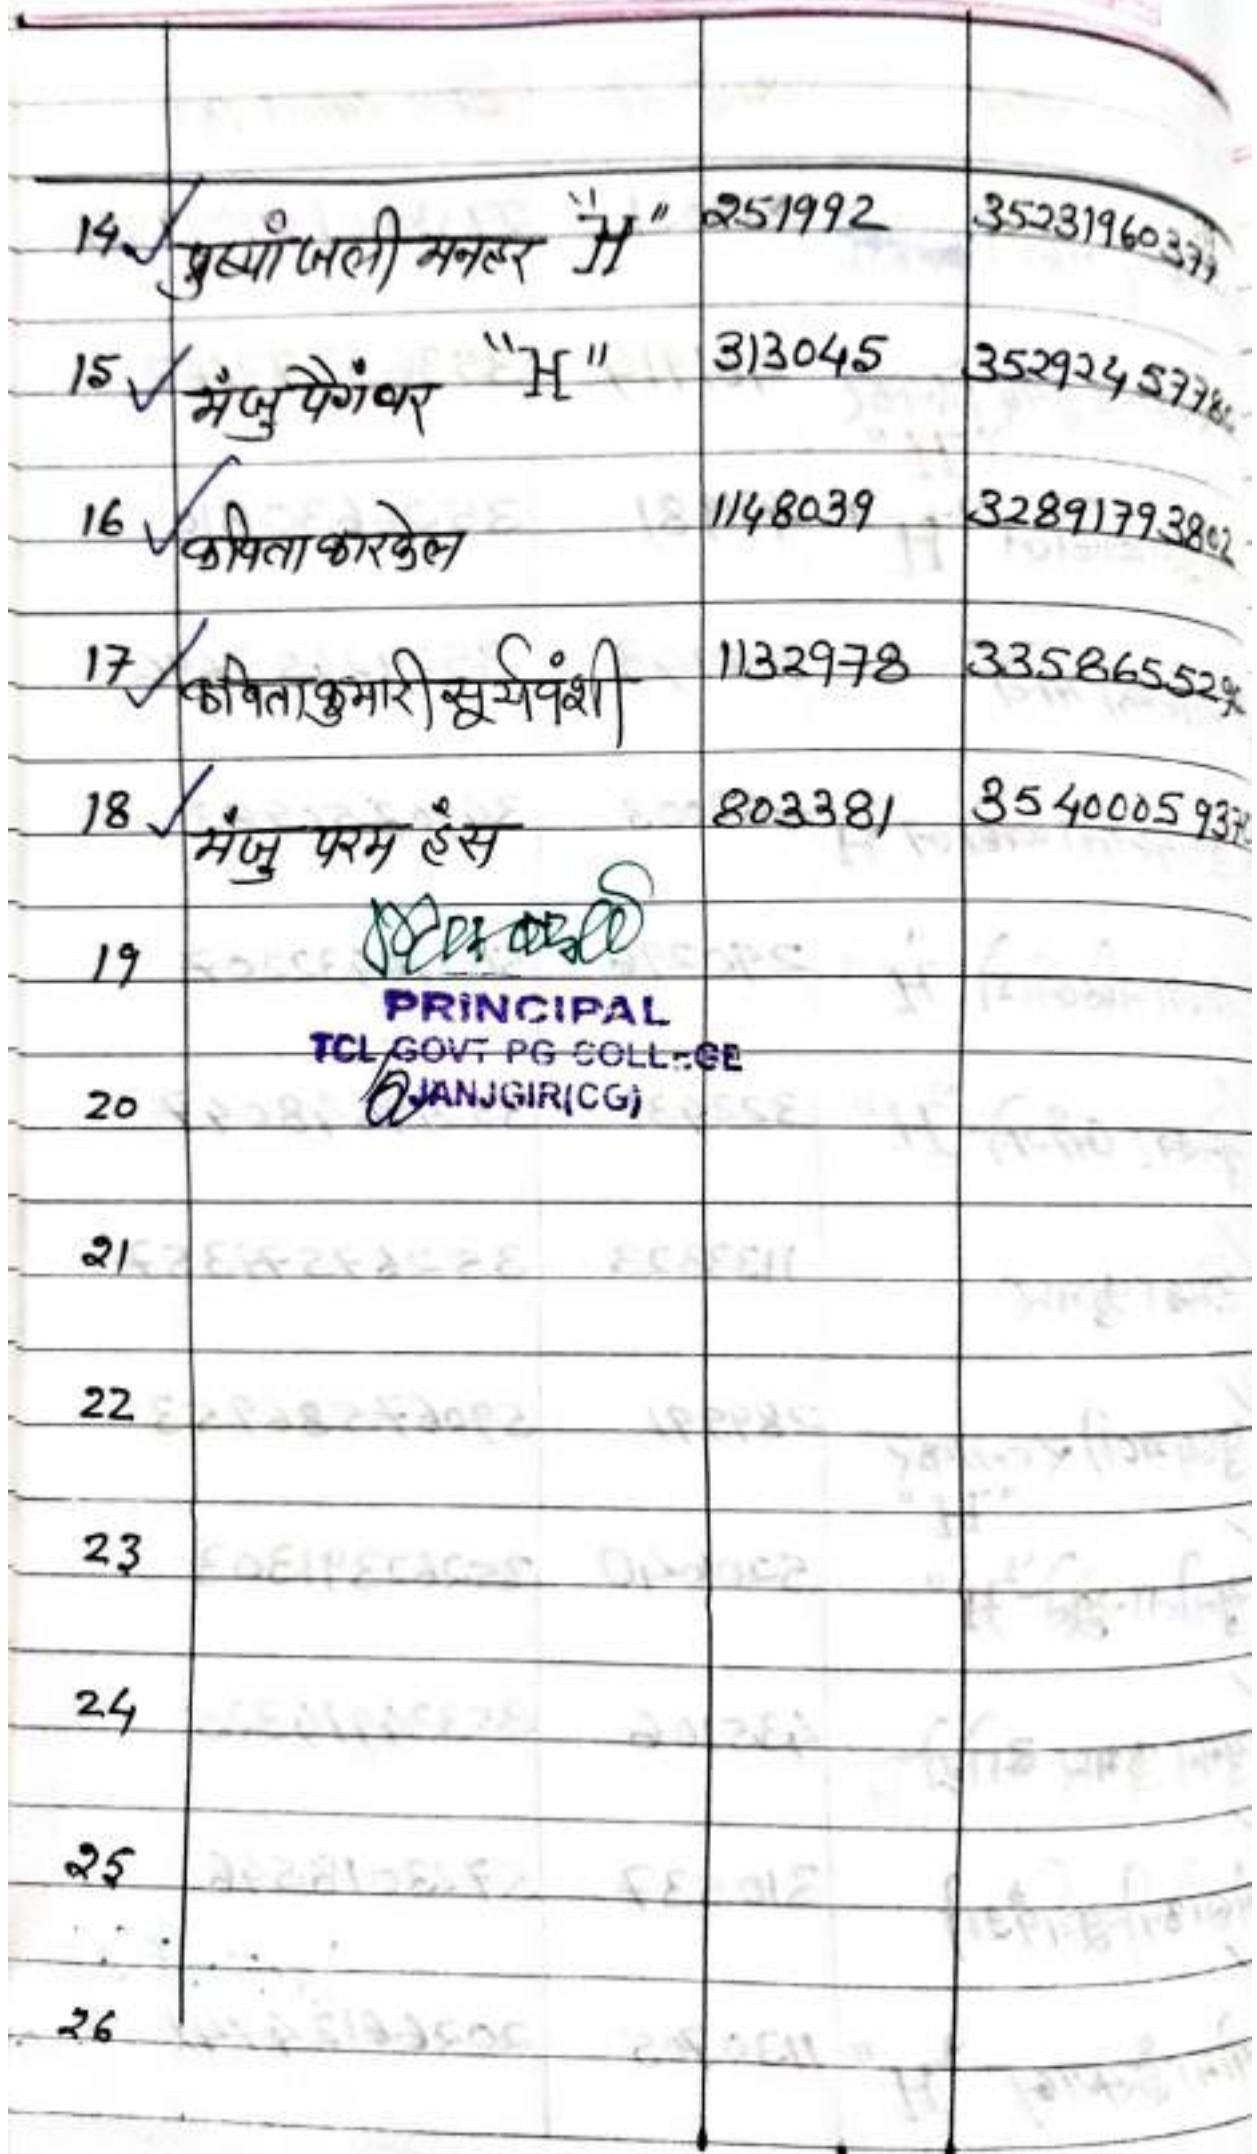 14 पुष्पांजली मनहर "H" 251992 35231960377
15 मंजु पैगंवर "H" 313045
16 कविता कारकेल 1148039 32891793802
17 कविता कुमारी सूर्यवंशी 1132978
18 मंजु परम हंस 803381
19
PRINCIPAL
TCL GOVT PG COLLEGE
20 JANJGIR(CG)
21
22
23
24
25
26